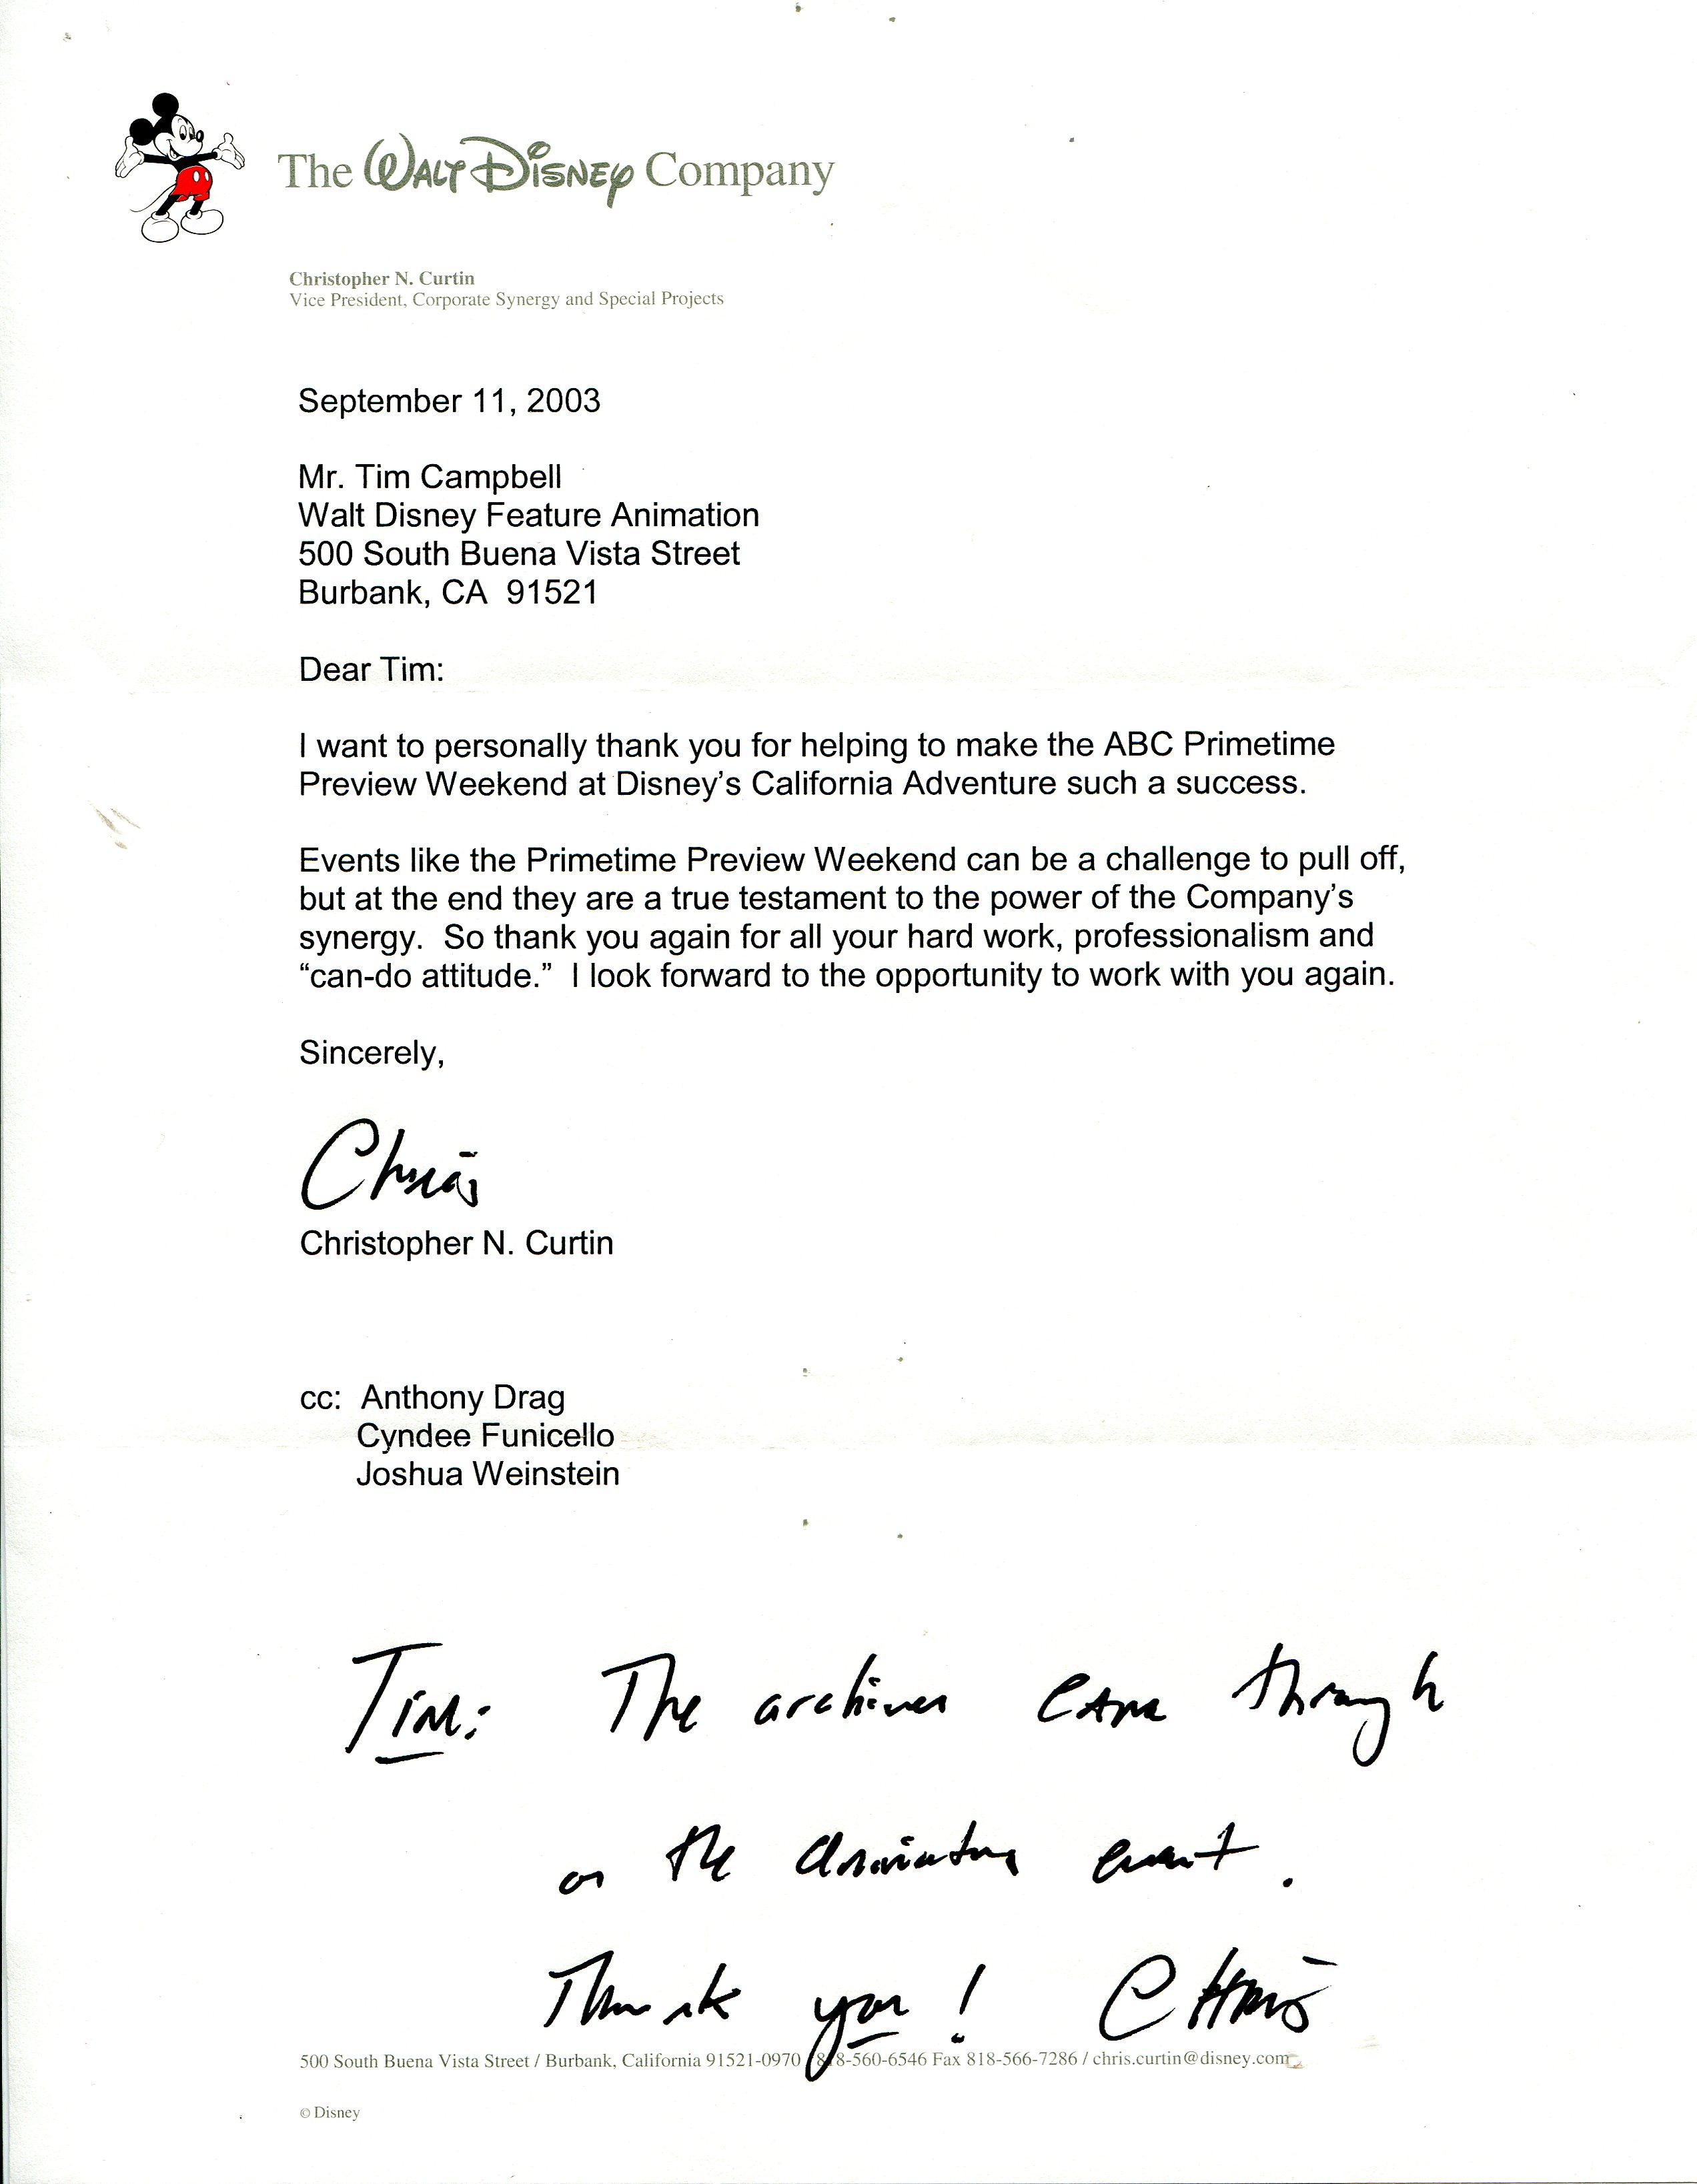 The WALT DISNEY Company
Christopher N. Curtin
Vice President, Corporate Synergy and Special Projects
September 11, 2003
Mr. Tim Campbell
Walt Disney Feature Animation
500 South Buena Vista Street
Burbank, CA  91521
Dear Tim:
I want to personally thank you for helping to make the ABC Primetime
Preview Weekend at Disney’s California Adventure such a success.
Events like the Primetime Preview Weekend can be a challenge to pull off,
but at the end they are a true testament to the power of the Company’s
synergy.  So thank you again for all your hard work, professionalism and
“can-do attitude.”  I look forward to the opportunity to work with you again.
Sincerely,
Chris
Christopher N. Curtin
cc:  Anthony Drag
Cyndee Funicello
Joshua Weinstein
Tim: The archives came through
on the animation event.
Thank you! CHRIS
500 South Buena Vista Street / Burbank, California 91521-0970 / 818-560-6546 Fax 818-566-7286 / chris.curtin@disney.com
© Disney